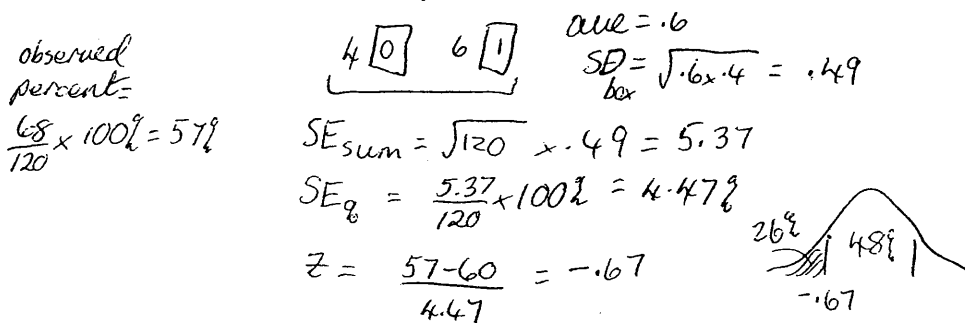 observed
percent=
68/120 × 100% = 57%
4 [0] 6 [1]
ave = .6
SD box = √.6x.4 = .49
SE sum = √120 × .49 = 5.37
SE % = 5.37/120 × 100% = 4.47%
Z = 57-60/4.47 = -.67
26%
48%
-.67